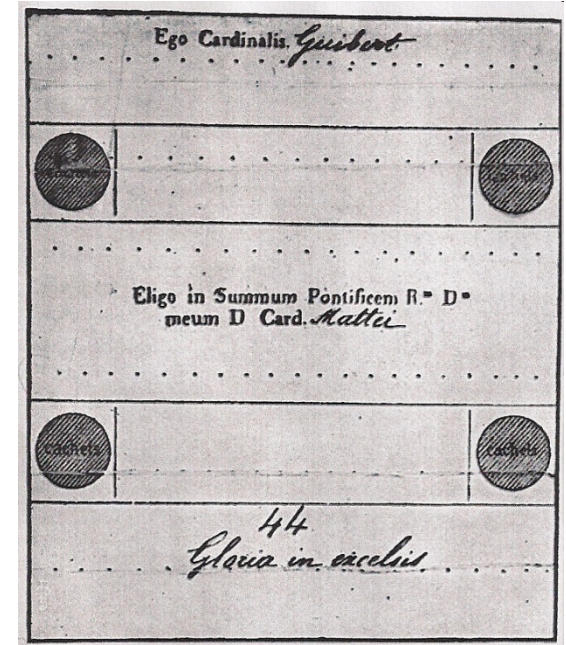 Ego Cardinalis. Guibert
cachets
Eligo in Summum Pontificem R.ᵐ Dᵐ
meum D Card. Mattei
cachets cachets
44
Gloria in excelsis